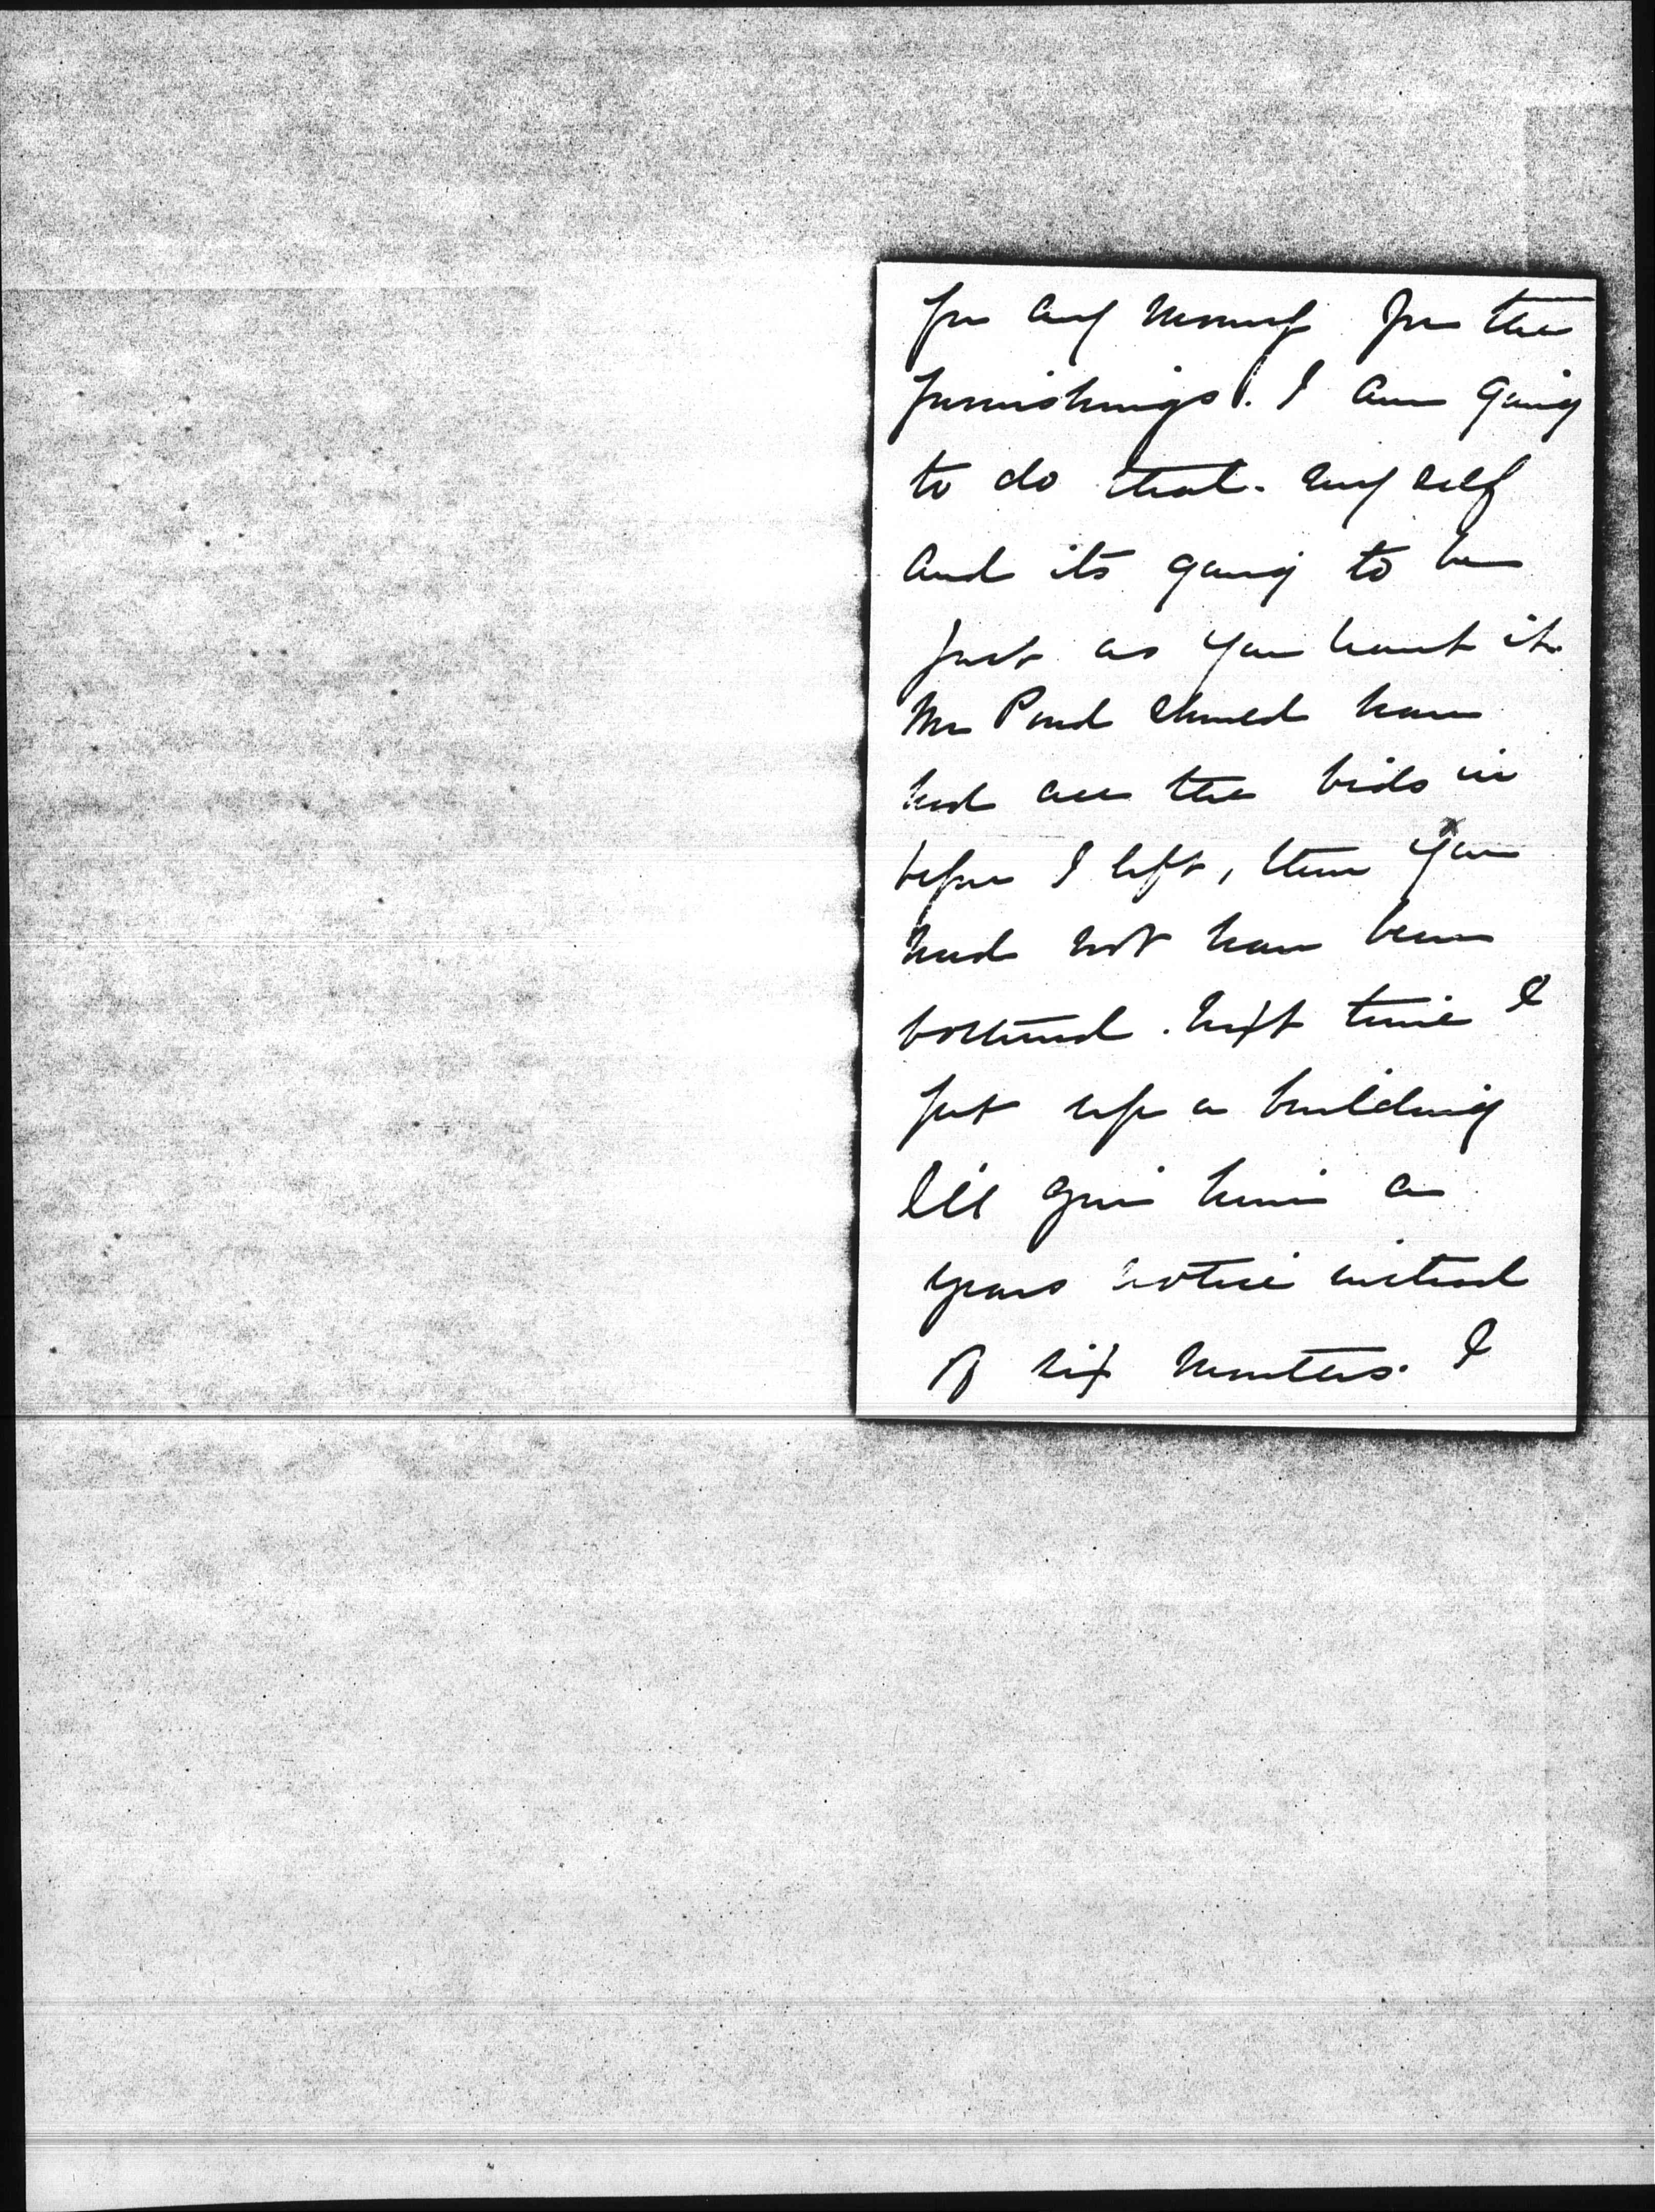 for any money for the
furnishings. I am going
to do that. myself
and its going to be
just as you want it.
Mr Pond should have
had all the bids in
before I left, then you
had not have been
bothered. Next time I
put up a building
Ill give him a
years notice instead
of six months. I